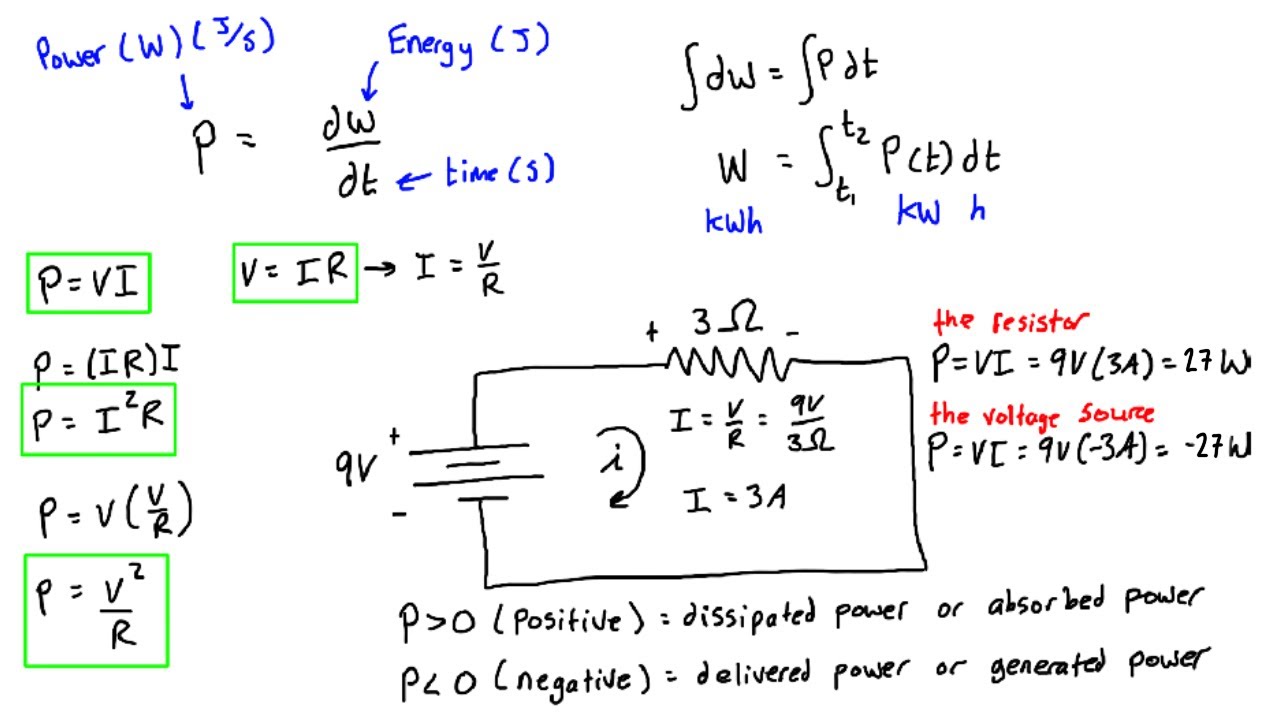 Power (W) (J/s)
Energy (J)
P = dw/dt ← time (s)
∫dw = ∫P dt
W = ∫t₁ t₂ P(t) dt
kWh kW h
P = VI
V = IR → I = V/R
P = (IR)I
P = I²R
P = V(V/R)
P = V²/R
+ 3Ω -
9V
+
-
i
I = V/R = 9V/3Ω
I = 3A
the resistor
P = VI = 9V(3A) = 27W
the voltage source
P = VI = 9V(-3A) = -27W
P > 0 (positive) = dissipated power or absorbed power
P < 0 (negative) = delivered power or generated power